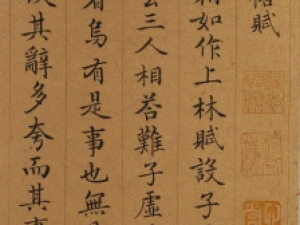 賦
相如作上林賦設子
三人相荅難子虛
烏有是事也無
其辭多夸而其事